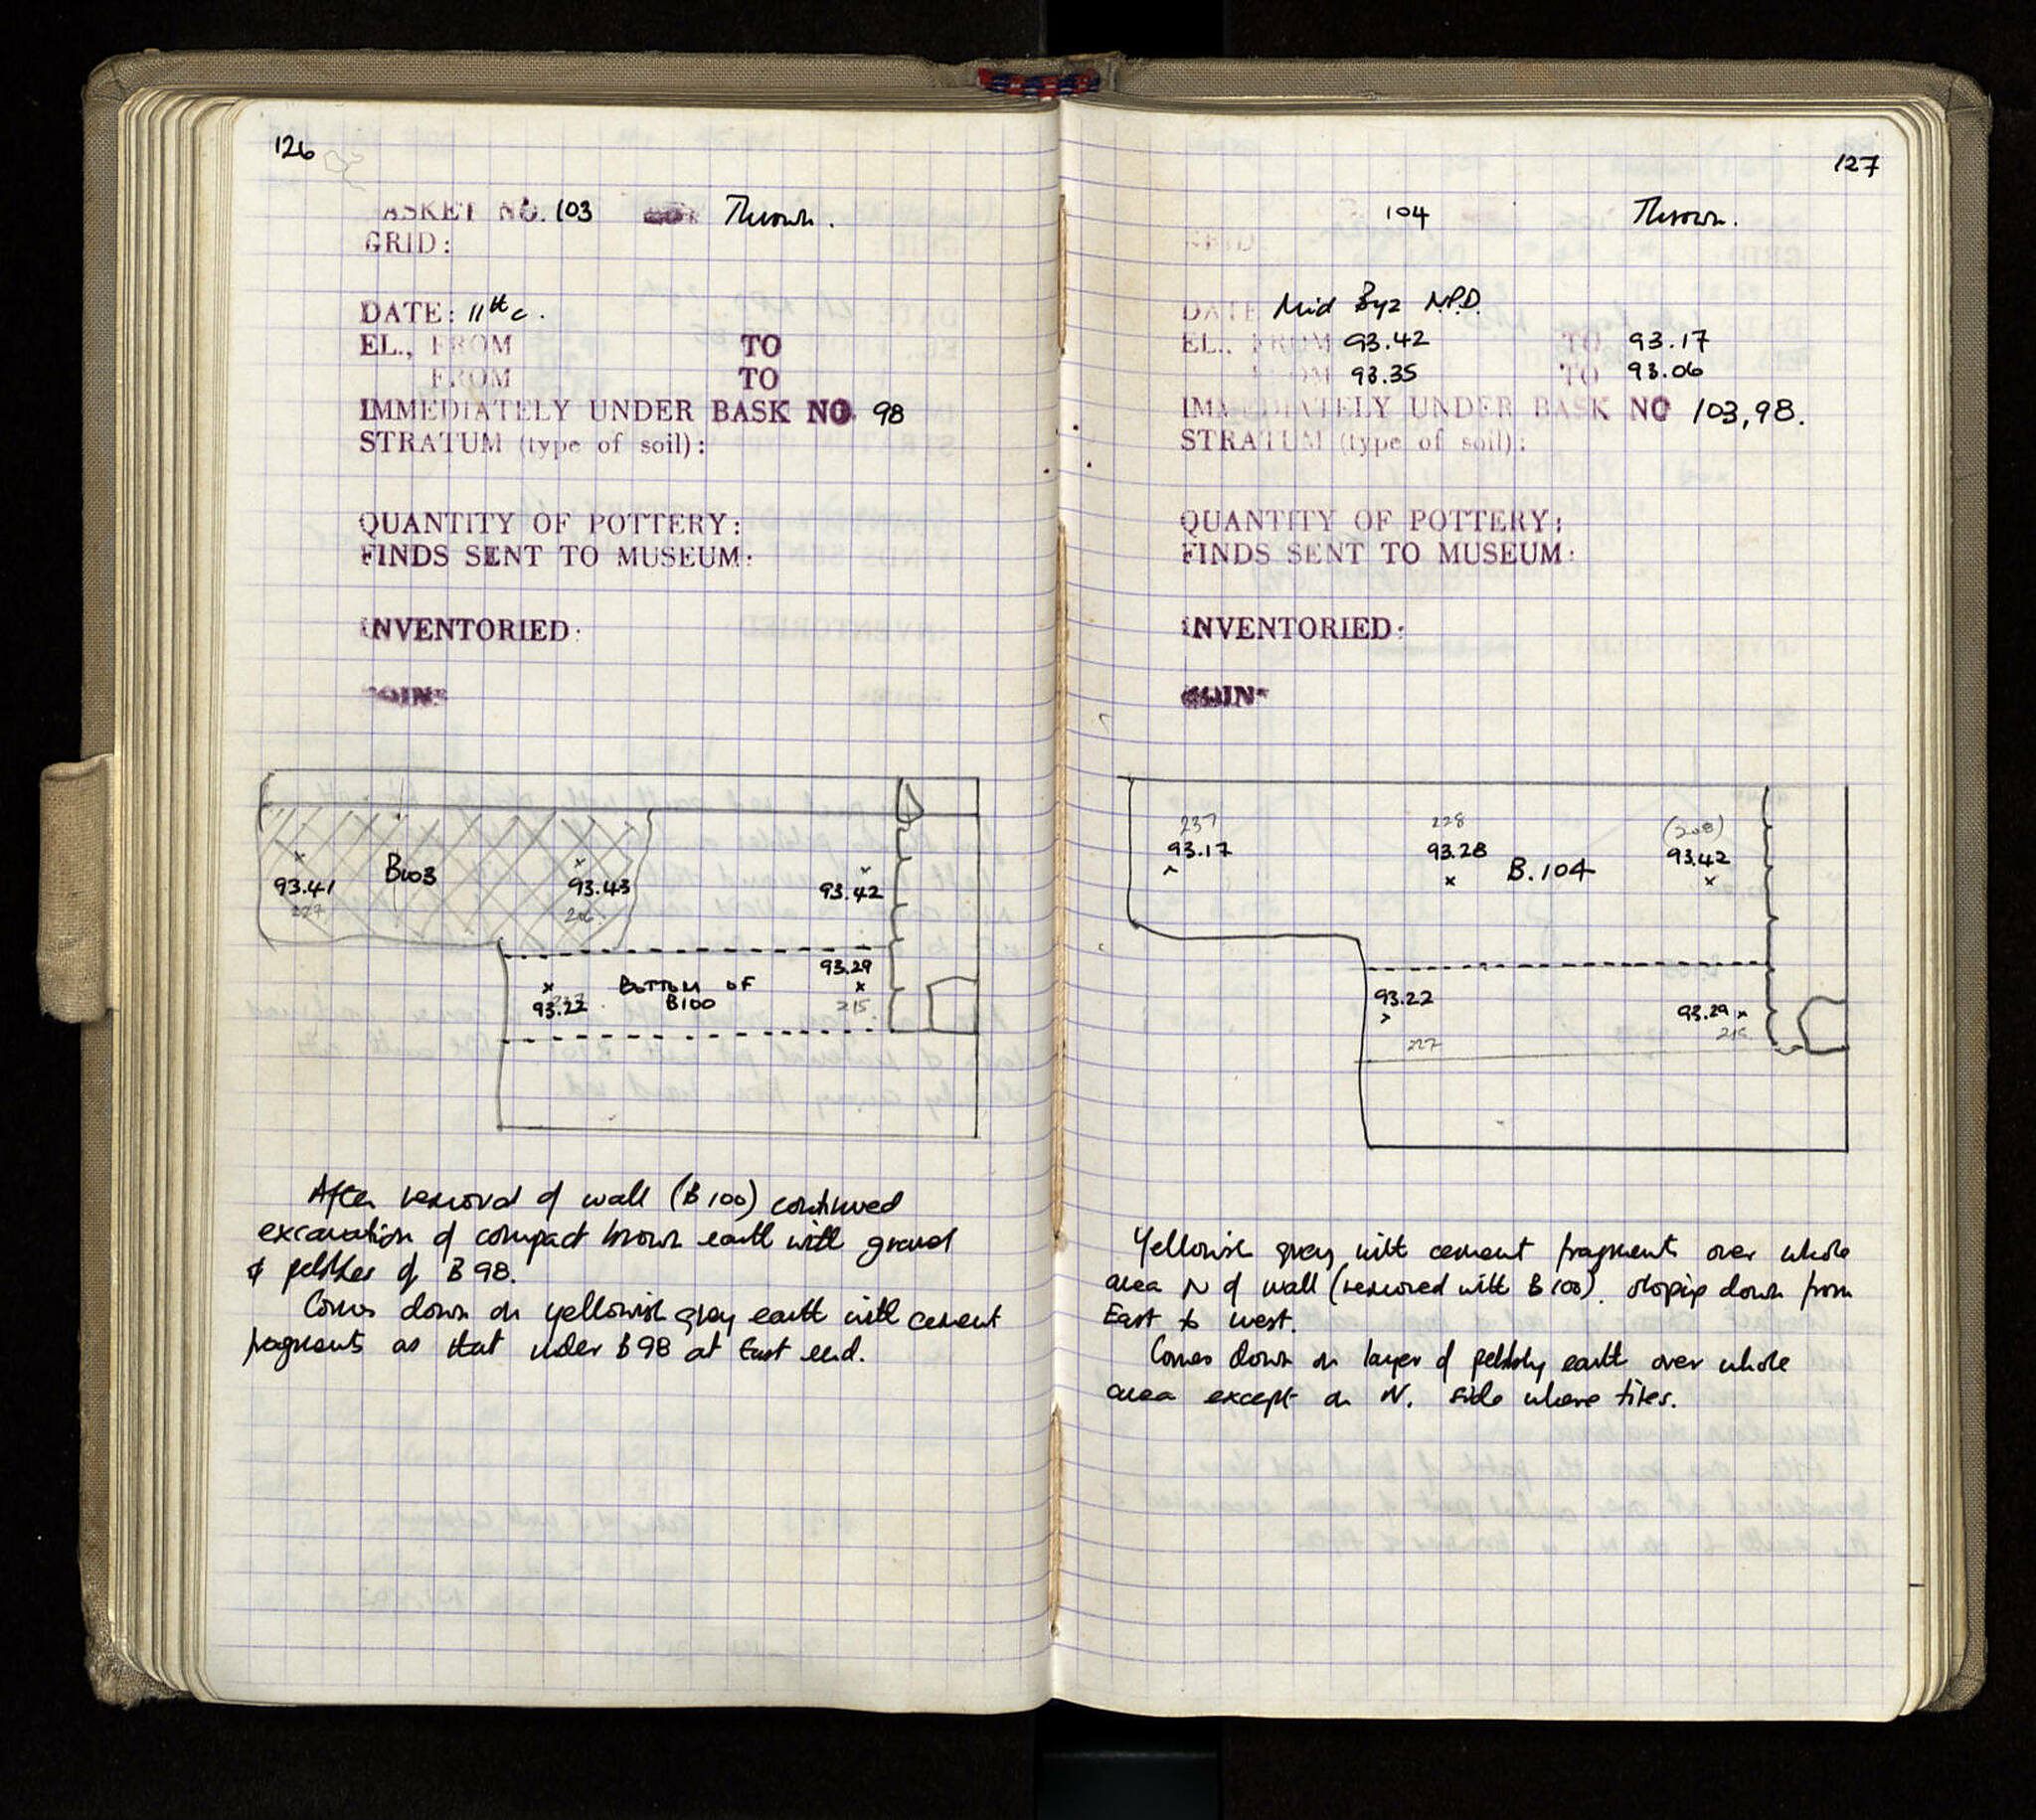 126
ASKET NO. 103 Thrown.
GRID:
DATE: 11th c.
EL., FROM TO
FROM TO
IMMEDIATELY UNDER BASK NO 98
STRATUM (type of soil):
QUANTITY OF POTTERY:
FINDS SENT TO MUSEUM:
INVENTORIED:
COIN
B103
93.41
227
93.43
206
93.42
93.29
BOTTOM OF
B100
93.22
215
After removal of wall (B100) continued
excavation of compact brown earth with gravel
& pebbles of B98.
Comes down on yellowish gray earth with cement
fragments as that under B98 at East end.
127
104 Thrown.
GRID:
DATE Mid Byz N.P.D.
EL., FROM 93.42 TO 93.17
FROM 93.35 TO 93.06
IMMEDIATELY UNDER BASK NO 103, 98.
STRATUM (type of soil):
QUANTITY OF POTTERY:
FINDS SENT TO MUSEUM:
INVENTORIED:
COIN
237
93.17
228
93.28
B.104
(208)
93.42
93.22
227
93.29
215
Yellowish gray with cement fragments over whole
area N of wall (removed with B100). sloping down from
East to west.
Comes down on layer of pebbly earth over whole
area except on N. side where tiles.